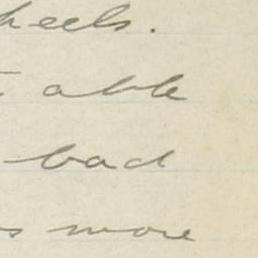 heels.
able
bad
more